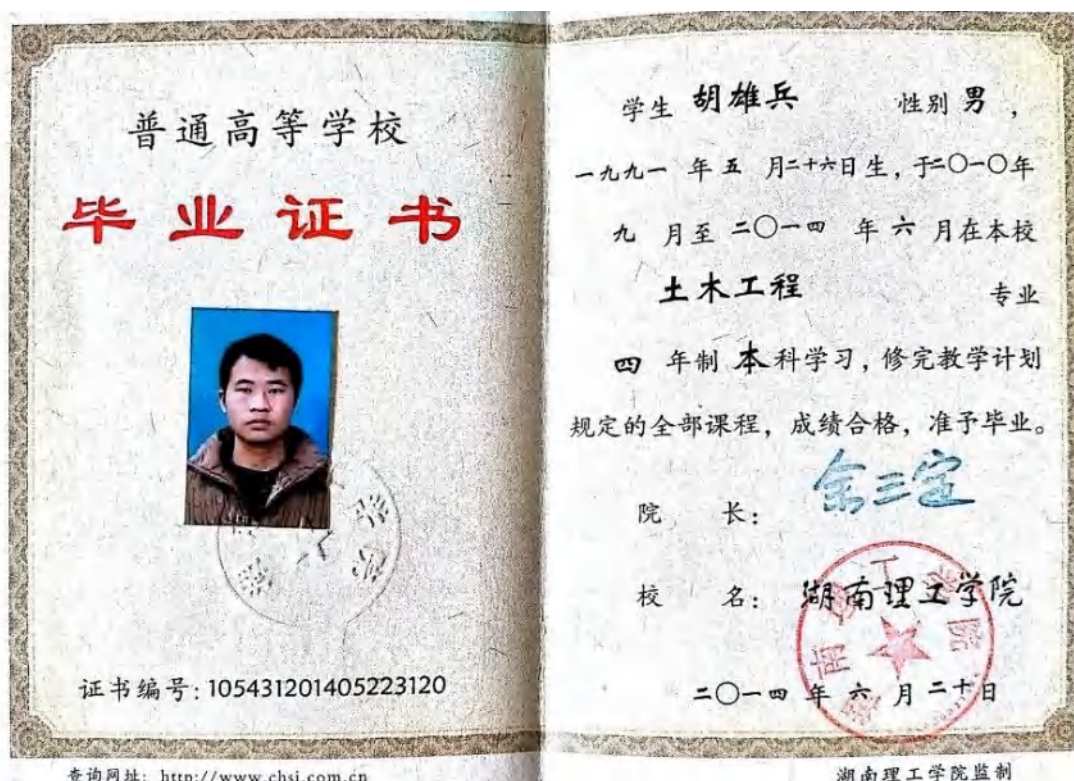 普通高等学校
毕业证书
证书编号：105431201405223120
查询网址：http://www.chsi.com.cn
学生 胡雄兵 性别 男，
一九九一 年 五 月二十六日生，于二〇一〇年
九 月至 二〇一四 年 六 月在本校
土木工程 专业
四 年制 本 科学习，修完教学计划
规定的全部课程，成绩合格，准予毕业。
院 长：余三定
校 名：湖南理工学院
二〇一四 年 六 月 二十日
湖南理工学院监制